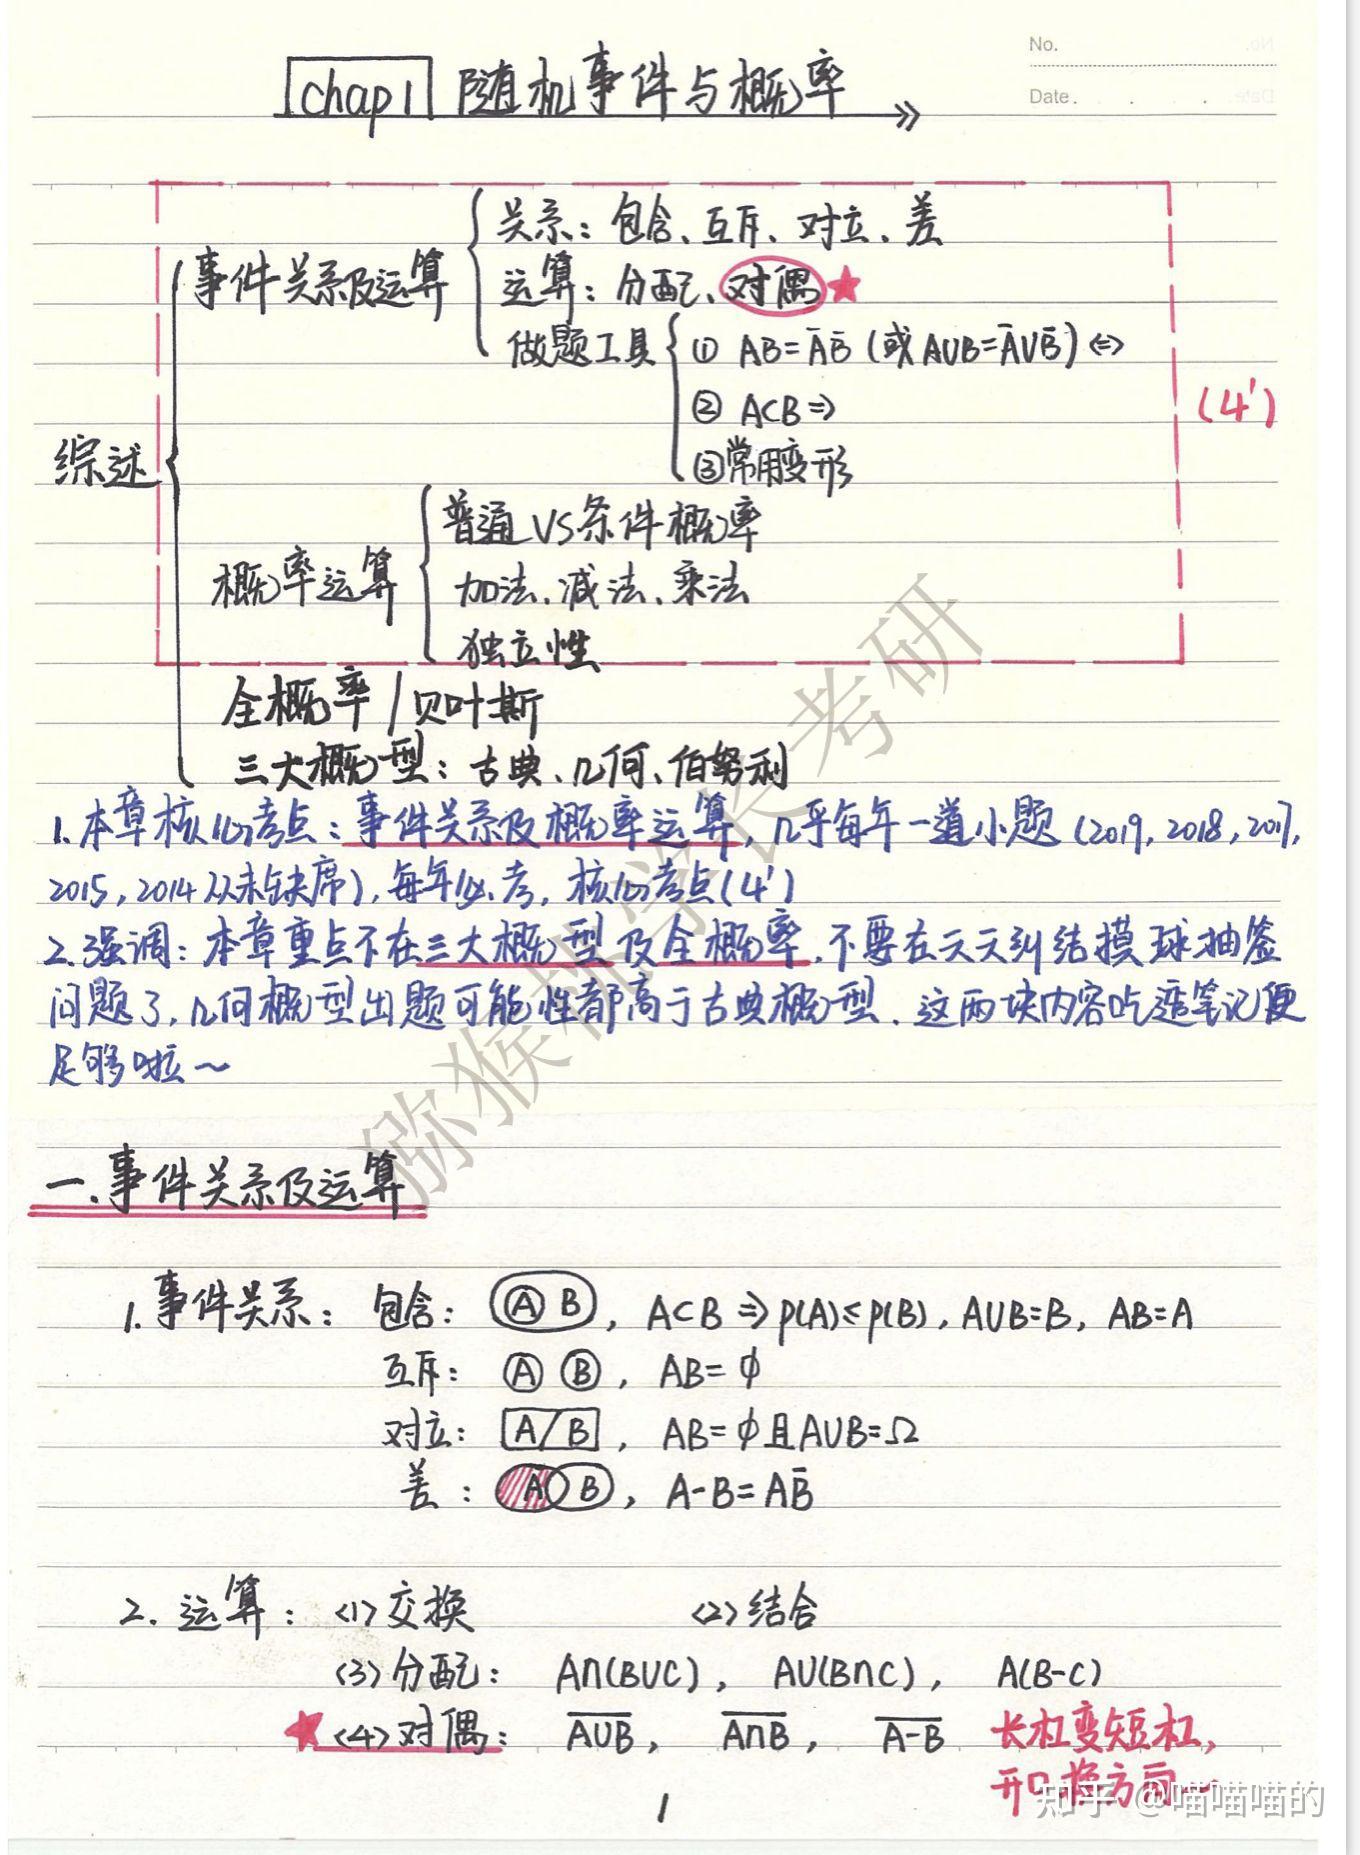 No.
Date.
chap1 随机事件与概率
关系：包含、互斥、对立、差
事件关系及运算
运算：分配、对偶★
做题工具 ① AB=A̅B̅（或A∪B=A̅∪B̅）⇔
② A⊂B⇒
(4')
③常用变形
综述
普通VS条件概率
概率运算
加法、减法、乘法
独立性
全概率/贝叶斯
三大概型：古典、几何、伯努利
1.本章核心考点：事件关系及概率运算，几乎每年一道小题（2019，2018，2017，
2015，2014从未缺席），每年必考，核心考点(4')
2.强调：本章重点不在三大概型及全概率，不要在天天纠结摸球抽签
问题了，几何概型出题可能性都高于古典概型，这两块内容吃透笔记便
足够啦～
一.事件关系及运算
1.事件关系：包含：A B，A⊂B⇒P(A)≤P(B)，A∪B=B，AB=A
互斥：A B，AB=∅
对立：A/B，AB=∅且A∪B=Ω
差：A B，A-B=AB̅
2.运算：<1>交换 <2>结合
<3>分配：A∩(B∪C)，A∪(B∩C)，A(B-C)
★<4>对偶：A∪B̅，A∩B̅，A-B̅ 长杠变短杠，
开口换方向
1
猕猴桃学长考研
知乎 @喵喵喵的